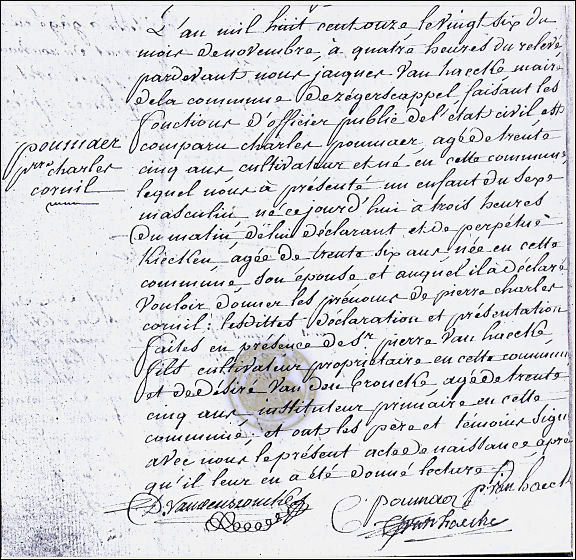 L'an mil huit cent onze le vingt six du
mois de novembre, à quatre heures du relevé
pardevant nous jacques Van haecke, maire
de la commune de zégerscappel, faisant les
fonctions d'officier public de l'état civil est
comparu charles poumaer, agé de trente
cinq ans, cultivateur et né en cette commune
lequel nous à présenté un enfant du sexe
masculin, né ce jour d'hui à trois heures
du matin, de lui déclarant et de perpétué
Kiecken, agée de trente six ans, née en cette
commune, son épouse et auquel il à déclaré
vouloir donner les prénoms de pierre charles
cornil: lesdittes déclaration et présentation
faites en présence de Sr pierre Van haecke,
fils cultivateur propriétaire en cette commune
et de désiré Van den broucke, agé de trente
cinq ans, instituteur primaire en cette
commune: et ont les père et témoins signé
avec nous le présent acte de naissance après
qu'il leur en a été donné lecture.
poumaer
pre charles
cornil
D. Vandenbroucke
C poumaer p. Van haecke
J Van haecke